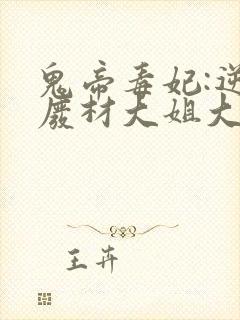 鬼帝毒妃:逆
废材大姐大
王卉